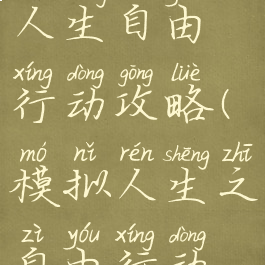 人生自由
xíng dòng gōng lüè
行动攻略(
mó nǐ rén shēng zhī
模拟人生之
zì yóu xíng dòng
自由行动